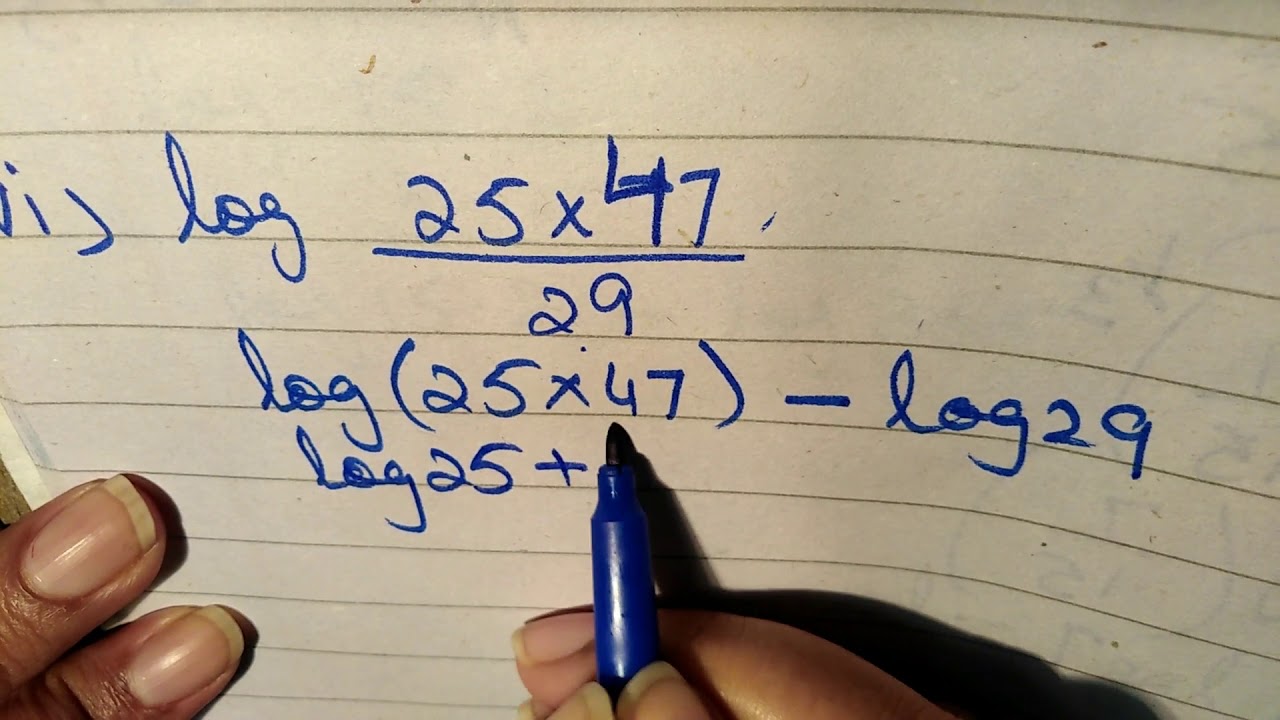 ii) log 25×47
29
log(25×47) – log29
log25+